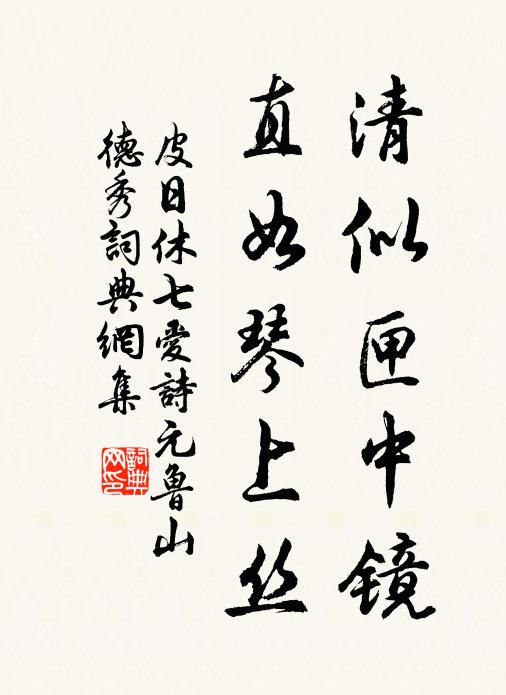 清似匣中镜
直如琴上丝
皮日休七愛詩元魯山
德秀詞典網集
詞典网印